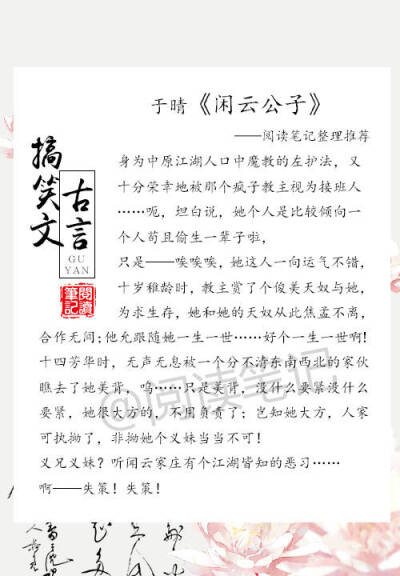 于晴《闲云公子》
——阅读笔记整理推荐
搞笑文
古言
GU
YAN
閱讀
筆記
身为中原江湖人口中魔教的左护法，又
十分荣幸地被那个疯子教主视为接班人
……呃，坦白说，她个人是比较倾向一
个人苟且偷生一辈子啦，
只是——唉唉唉，她这人一向运气不错，
十岁稚龄时，教主赏了个俊美天奴与她，
为求生存，她和她的天奴从此焦孟不离，
合作无间；他允跟随她一生一世……好个一生一世啊！
十四芳华时，无声无息被一个分不清东南西北的家伙
瞧去了她美背，呜……只是美背，没什么要紧没什么
要紧，她很大方的，不用负责了；岂知她大方，人家
可执拗了，非拗她个义妹当当不可！
义兄义妹？听闻云家庄有个江湖皆知的恶习……
啊——失策！失策！
@阅读笔记